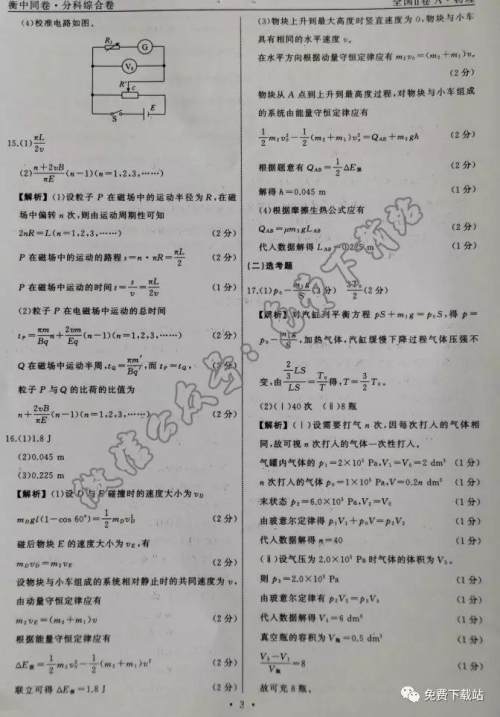 衡中同卷·分科综合卷
全国Ⅱ卷 A·物理
(4)校准电路如图。
R₁
G
V₂
R′
c
S
E
15.(1)πL/2v
(2)(n+2vB/πE)(n−1)(n=1,2,3,……)
【解析】(1)设粒子 P 在磁场中的运动半径为 R,在磁
场中偏转 n 次,则由运动周期性可知
2nR=L(n=1,2,3,……) (2分)
P 在磁场中的运动的路程 s=n·πR=πL/2 (2分)
P 在磁场中运动的时间 t=s/v=πL/2v (1分)
(2)粒子 P 在电磁场中运动的总时间
tP=πm/Bq n+2vm/Eq (n−1)(n=1,2,3,……) (2分)
Q 在磁场中运动半周,tQ=πm′/Bq′,而 tP=tQ, (2分)
粒子 P 与 Q 的比荷的比值为
n+2vB/πE (n−1)(n=1,2,3,……) (2分)
16.(1)1.8 J
(2)0.045 m
(3)0.225 m
【解析】(1)设 D 与 E 碰撞时的速度大小为 vD
mDgl(1−cos 60°)=1/2 mDvD² (2分)
碰后物块 E 的速度大小为 vE,有
mDvD=m2vE (2分)
设物块与小车组成的系统相对静止时的共同速度为 v,
由动量守恒定律应有
m2vE=(m2+m1)v (2分)
根据能量守恒定律应有
(2分)
联立可得 (1分)
• 3 •
(3)物块上升到最大高度时竖直速度为 0,物块与小车
具有相同的水平速度 v。
在水平方向根据动量守恒定律应有
(2分)
物块从 A 点到上升到最高度过程,对物块与小车组成
的系统由能量守恒定律应有
(2分)
根据题意有 QAB=1/2 ΔE (1分)
解得 h=0.045 m (1分)
(4)根据摩擦生热公式应有
QAB=μm2gLAB (2分)
代入数据解得 LAB=0.225 m (1分)
(二)选考题
17.(1) (3分) (2分)
【解析】对汽缸列平衡方程
,加热气体,汽缸缓慢下降过程气体压强不
变,由
(2)(Ⅰ)40次 (Ⅱ)8瓶
【解析】(Ⅰ)设需要打气 n 次,因每次打入的气体相
同,故可视 n 次打入的气体一次性打入。
气罐内气体的 p1=2×10⁵ Pa,V1=V0=2 dm³ (1分)
n 次打入的气体 p0=1×10⁵ Pa,V=0.2n dm³ (1分)
末状态 p2=6.0×10⁵ Pa,V2=V0 (1分)
由玻意尔定律得 p1V1+p0V=p2V2 (1分)
代入数据解得 n=40 (1分)
(Ⅱ)设气压为 2.0×10⁵ Pa 时气体的体积为 V3。
则 p3=2.0×10⁵ Pa (1分)
由玻意尔定律有 p2V2=p3V3 (1分)
代入数据解得 V3=6 dm³ (1分)
真空瓶的容积为 V瓶=0.5 dm³ (1分)
(V3−V1)/V瓶=8 (1分)
故可充 8 瓶。
免费下载站